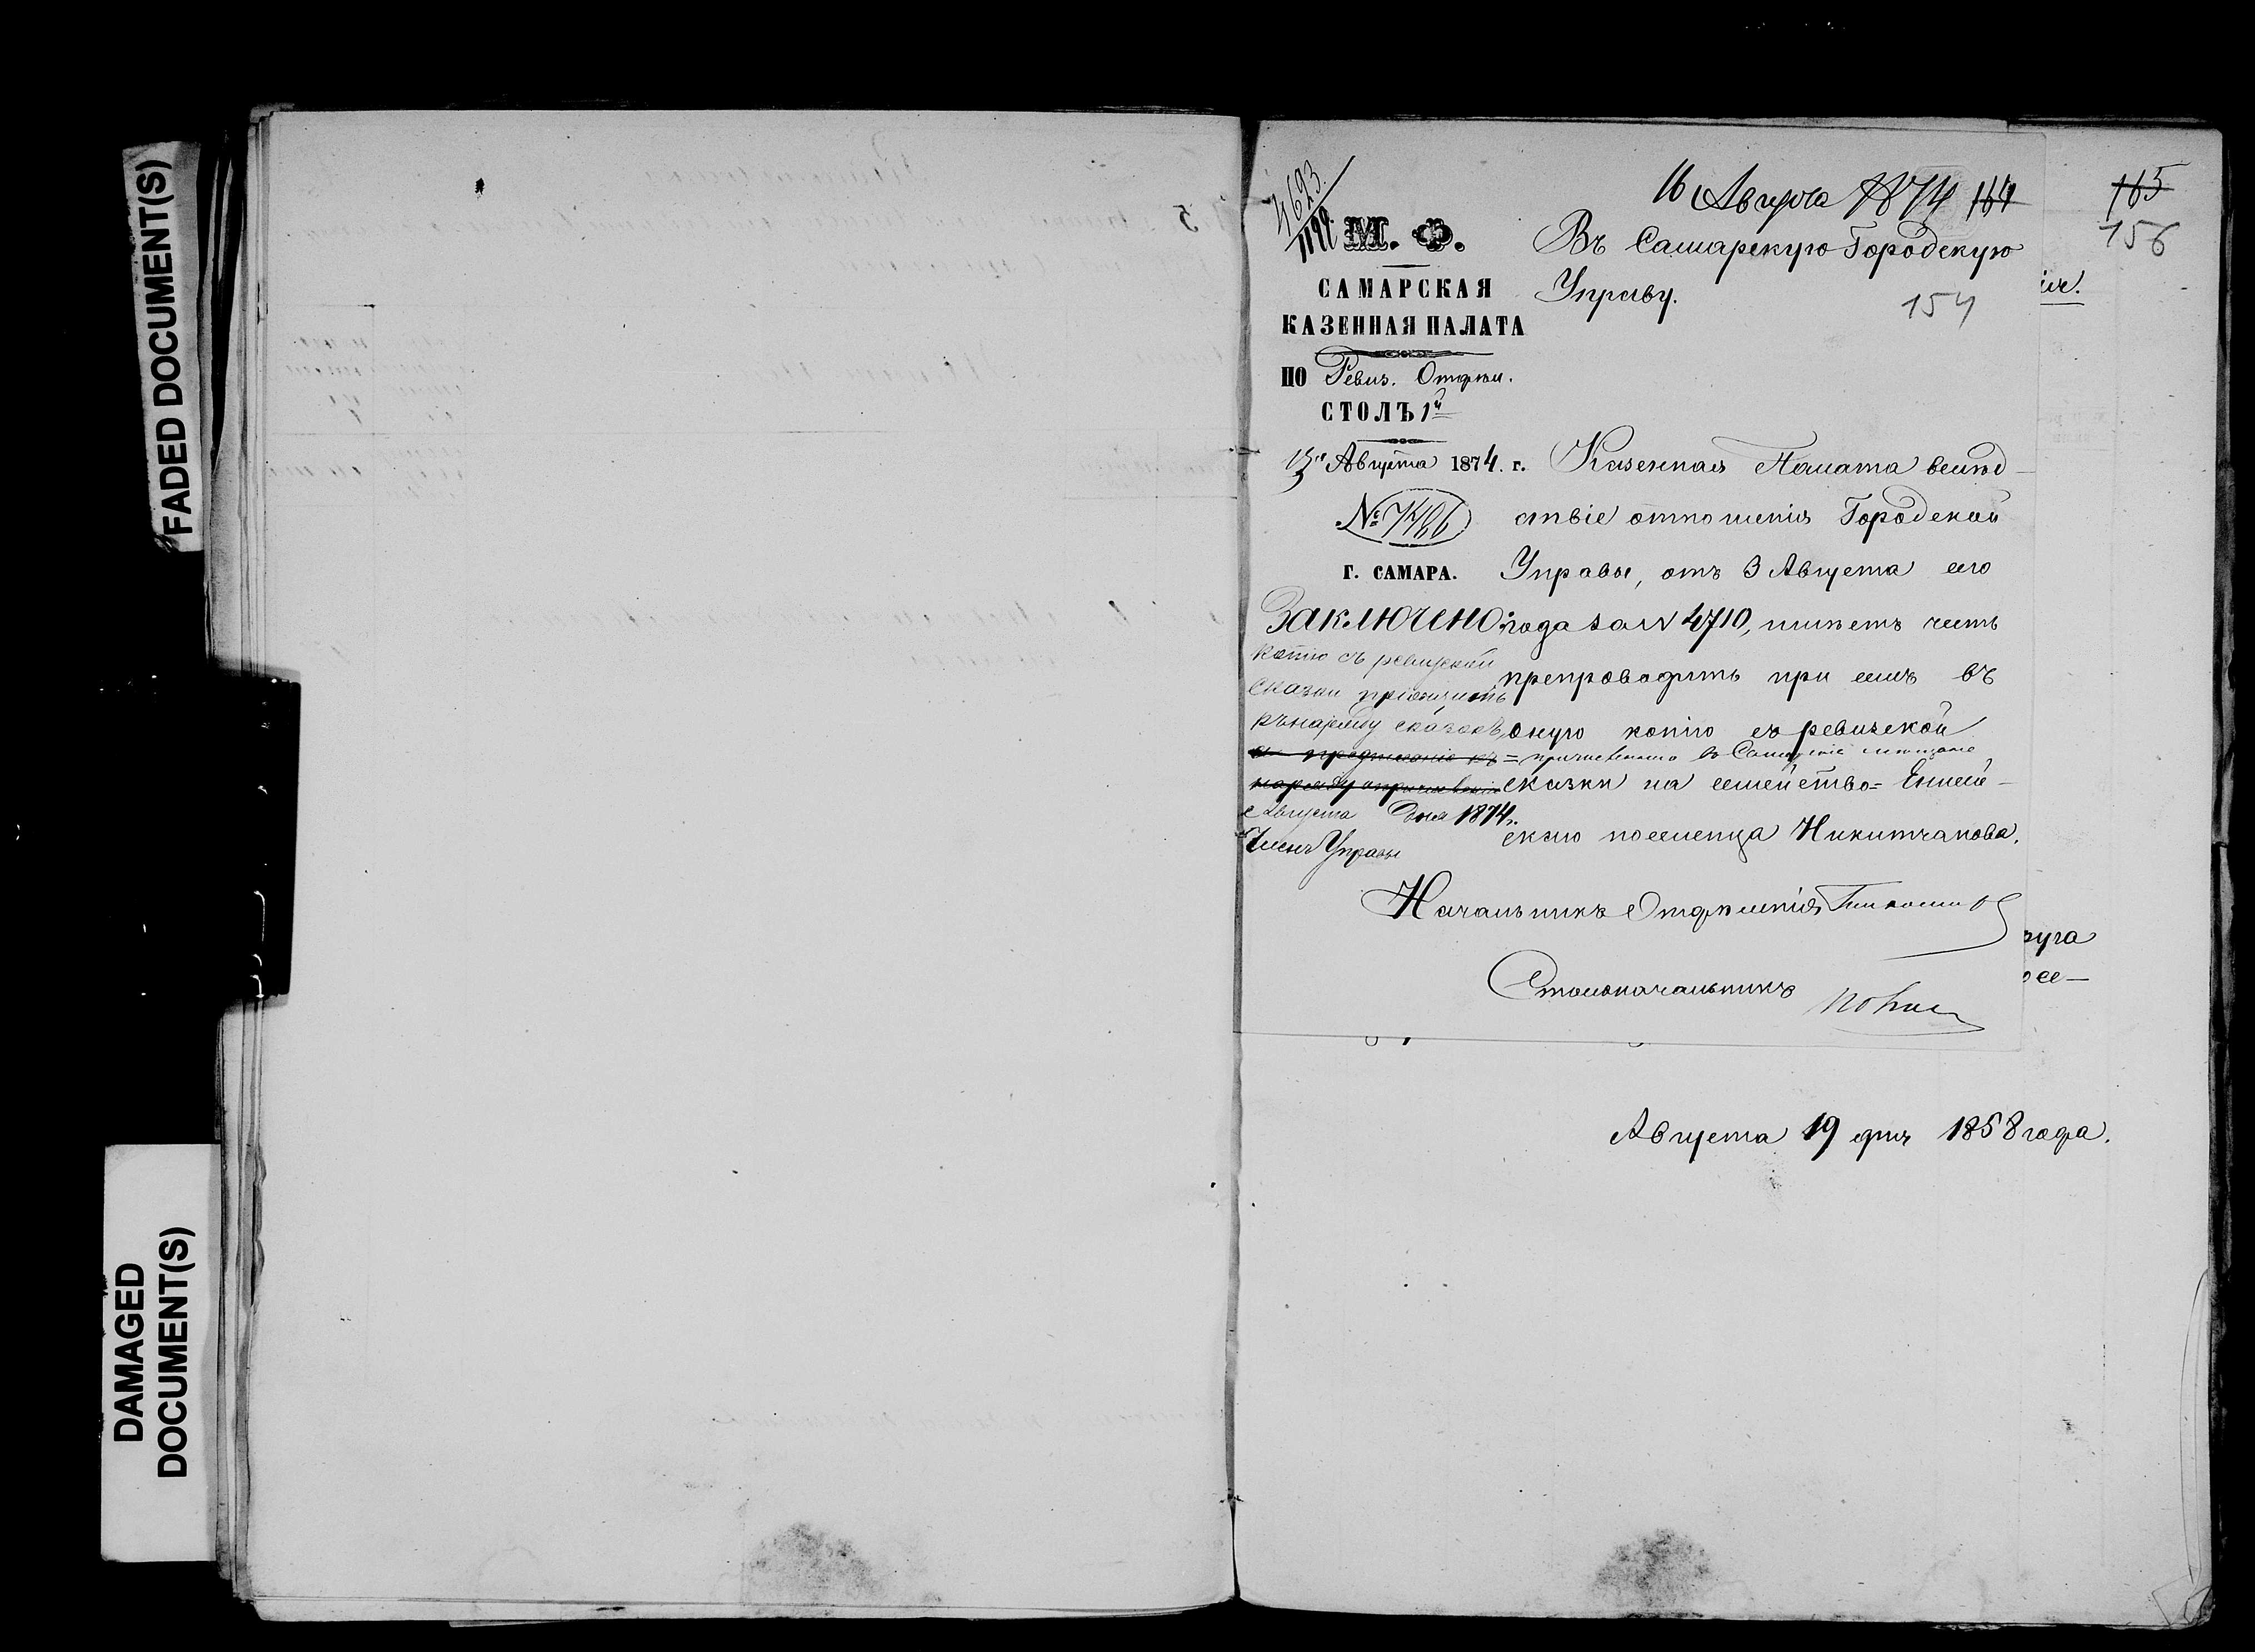 FADED DOCUMENT(S)
DAMAGED
DOCUMENT(S)
4693
16 Августа 1874 164
165
156
М. Ф.
САМАРСКАЯ
КАЗЕННАЯ ПАЛАТА
ПО Ревиз. Отдѣл.
СТОЛЪ 1й
13го Августа 1874. г.
№ 7486
Г. САМАРА.
Въ Самарскую Городскую
Управу.
154
Казенная Палата вслѣд-
ствіе отношенія Городской
Управы, отъ 3 Августа сего
года за N 4710, имѣетъ честь
препроводить при семъ въ
оную копію съ ревизской
= причисленнаго въ Самарскіе мѣщане
сказки на семейство = Енисей-
скаго поселенца Никитчанова.
Заключено:
копію съ ревизской
сказки пріобщить
къ наряду сказокъ,
Августа дня 1874 г.
Членъ Управы
Начальникъ Отдѣленія
Столоначальникъ
руга
Августа 19 дня 1858 года.